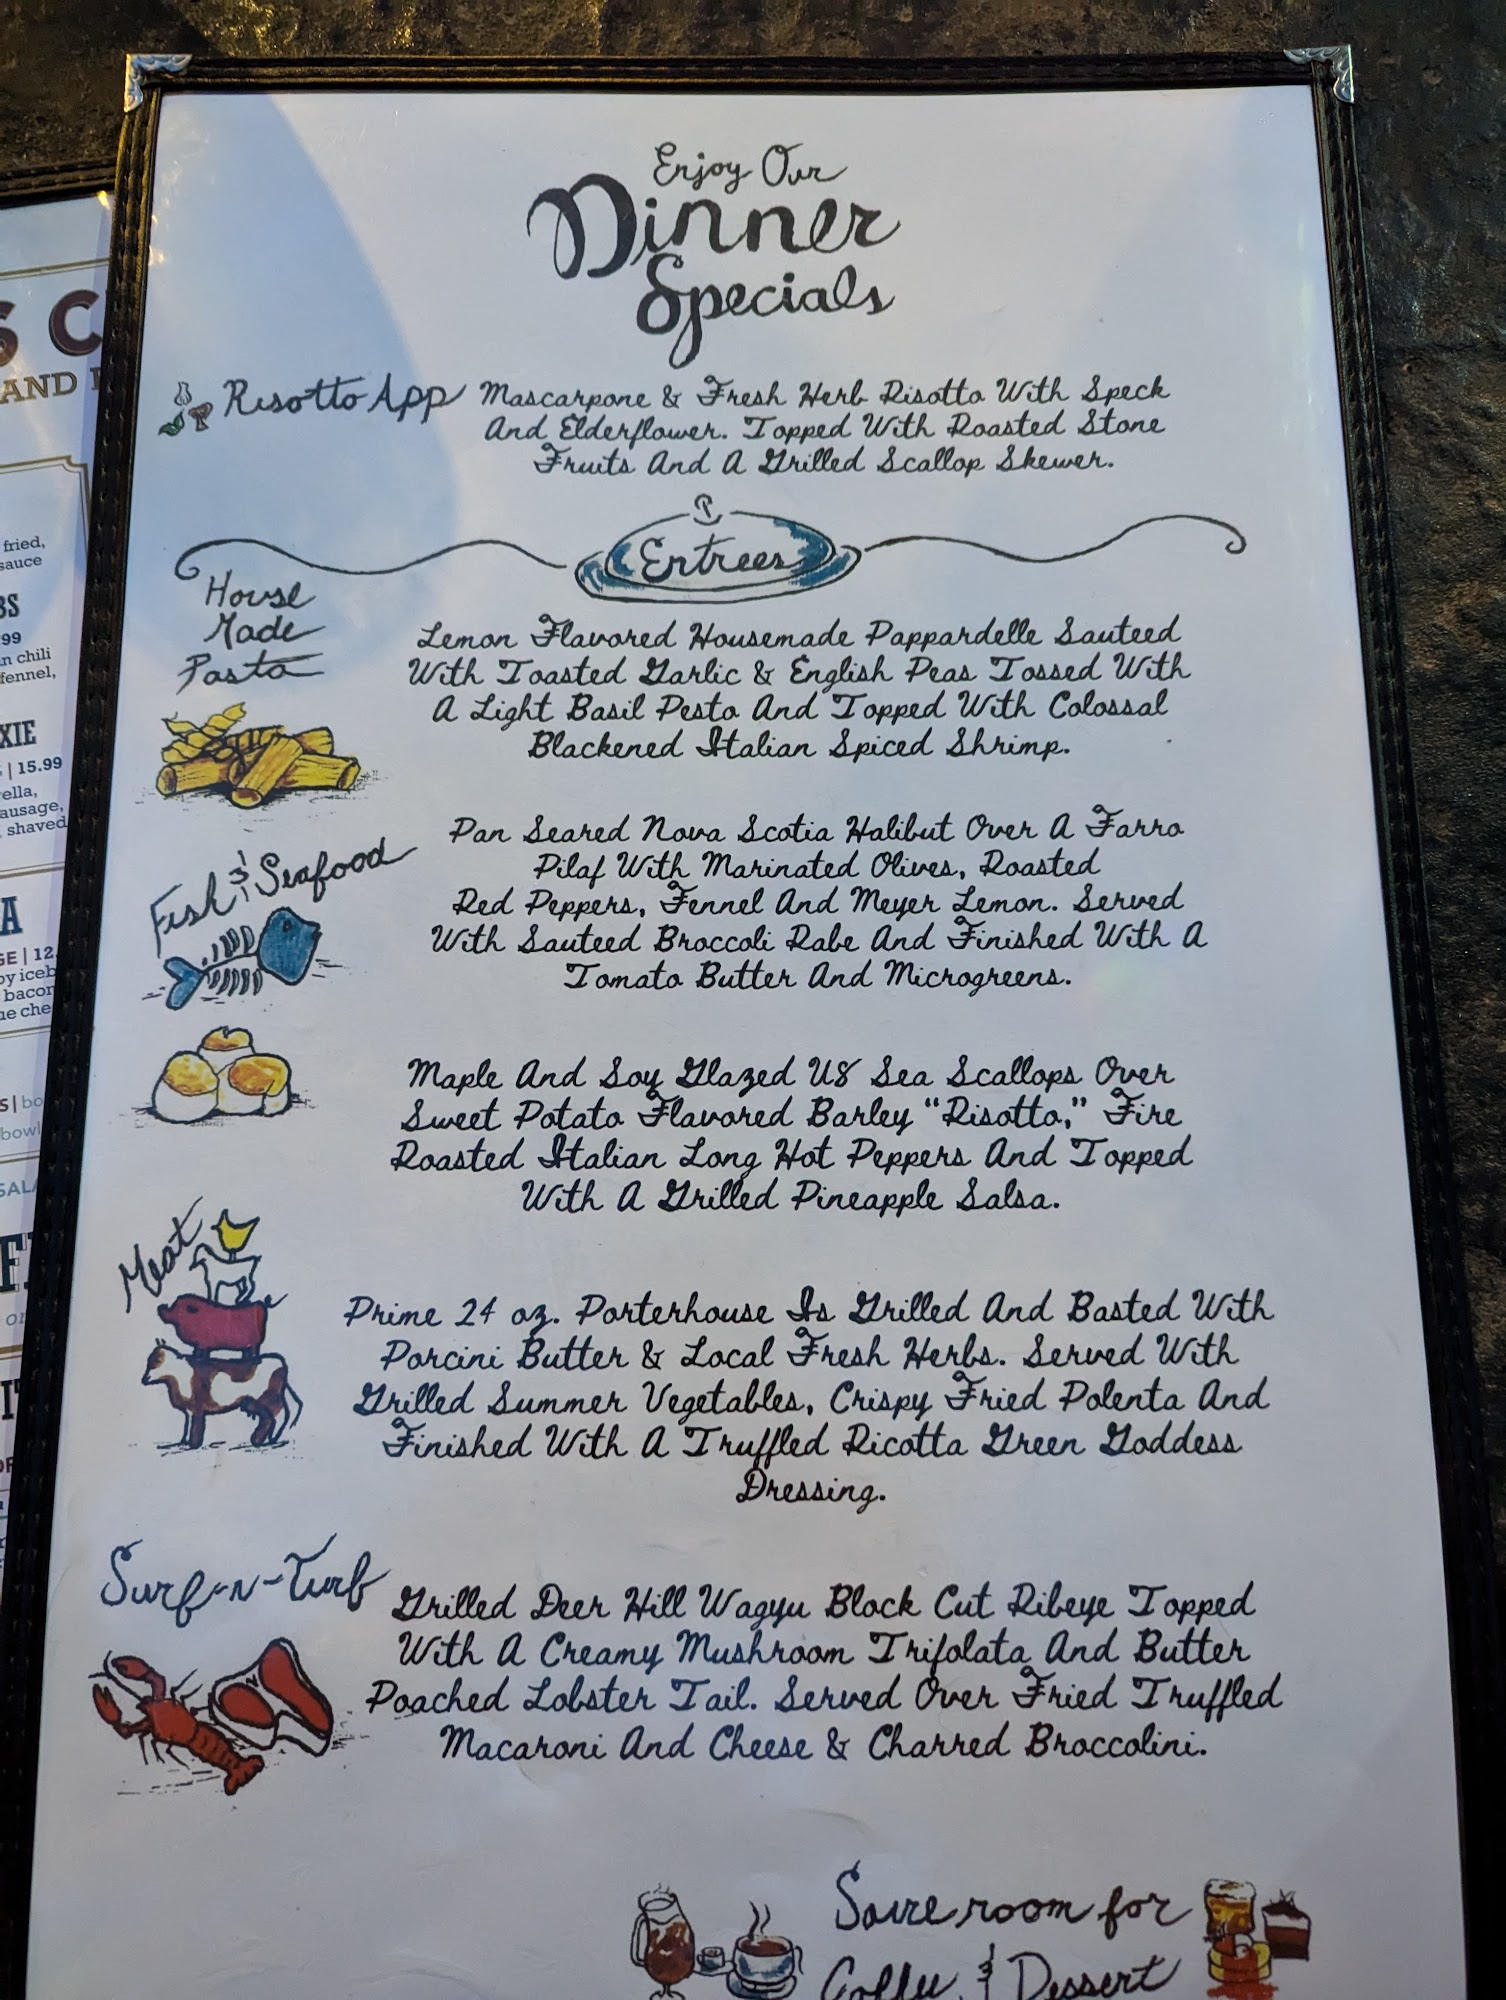 Enjoy Our
Dinner
Specials
Risotto App
Mascarpone & Fresh Herb Risotto With Speck
And Elderflower. Topped With Roasted Stone
Fruits And A Grilled Scallop Skewer.
Entrees
House
Made
Pasta
Lemon Flavored Housemade Pappardelle Sauteed
With Toasted Garlic & English Peas Tossed With
A Light Basil Pesto And Topped With Colossal
Blackened Italian Spiced Shrimp.
Fish & Seafood
Pan Seared Nova Scotia Halibut Over A Farro
Pilaf With Marinated Olives, Roasted
Red Peppers, Fennel And Meyer Lemon. Served
With Sauteed Broccoli Rabe And Finished With A
Tomato Butter And Microgreens.
Maple And Soy Glazed U8 Sea Scallops Over
Sweet Potato Flavored Barley "Risotto," Fire
Roasted Italian Long Hot Peppers And Topped
With A Grilled Pineapple Salsa.
Meat
Prime 24 oz. Porterhouse Is Grilled And Basted With
Porcini Butter & Local Fresh Herbs. Served With
Grilled Summer Vegetables, Crispy Fried Polenta And
Finished With A Truffled Ricotta Green Goddess
Dressing.
Surf-n-Turf
Grilled Deer Hill Wagyu Block Cut Ribeye Topped
With A Creamy Mushroom Trifolata And Butter
Poached Lobster Tail. Served Over Fried Truffled
Macaroni And Cheese & Charred Broccolini.
Save room for
Coffee & Dessert
S C
AND
fried,
sauce
BS
99
n chili
fennel,
XIE
| 15.99
ella,
ausage,
shaved
A
GE | 12.
by iceb
bacon
ue che
S | bo
bowl
SALA